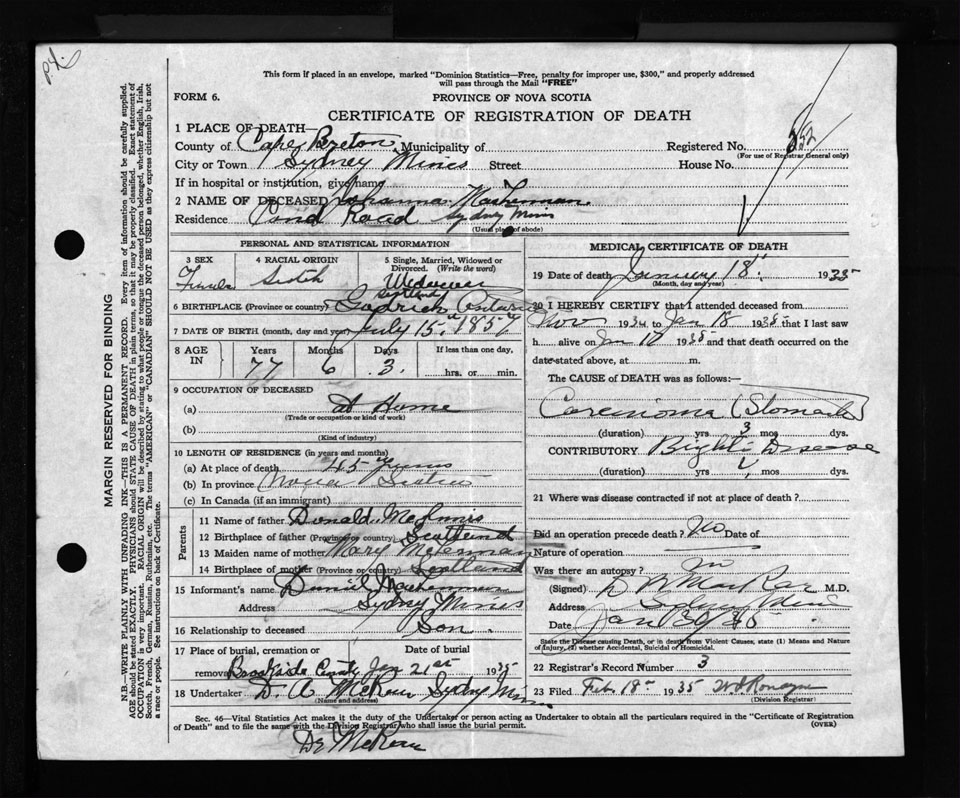 This form if placed in an envelope, marked "Dominion Statistics—Free, penalty for improper use, $300," and properly addressed
will pass through the Mail "FREE"
FORM 6.
PROVINCE OF NOVA SCOTIA
CERTIFICATE OF REGISTRATION OF DEATH
1 PLACE OF DEATH—
County of Cape Breton Municipality of Registered No. 352
(For use of Registrar General only)
City or Town Sydney Mines Street House No.
If in hospital or institution, give name
2 NAME OF DECEASED Johanna
Residence Pond Road Sydney Mines
(Usual place of abode)
PERSONAL AND STATISTICAL INFORMATION
3 SEX 4 RACIAL ORIGIN 5 Single, Married, Widowed or Divorced. (Write the word)
Female Scotch
6 BIRTHPLACE (Province or country)
7 DATE OF BIRTH (month, day and year) July 15th 1857
8 AGE IN Years Months Days If less than one day,
77 6 3. hrs. or min.
9 OCCUPATION OF DECEASED
(a) At Home
(Trade or occupation or kind of work)
(b)
(Kind of industry)
10 LENGTH OF RESIDENCE (in years and months)
(a) At place of death 45 years
(b) In province Nova Scotia
(c) In Canada (if an immigrant)
Parents
11 Name of father Donald McInnis
12 Birthplace of father (Province or country) Scotland
13 Maiden name of mother Mary
14 Birthplace of mother (Province or country) Scotland
15 Informant's name Daniel
Address Sydney Mines
16 Relationship to deceased Son.
17 Place of burial, cremation or removal Date of burial
Brookside Jan 21st 1935
18 Undertaker D. A. McRae Sydney Mines
(Name and address)
MEDICAL CERTIFICATE OF DEATH
19 Date of death January 18th 1935
(Month, day and year)
20 I HEREBY CERTIFY that I attended deceased from
Nov 1934 to Jan 18 1935 that I last saw
h alive on Jan 1935 and that death occurred on the
date stated above, at m.
The CAUSE OF DEATH was as follows:
Carcinoma (Stomach)
(duration) yrs 3 mos dys.
CONTRIBUTORY Bright's Disease
(duration) yrs mos. dys.
21 Where was disease contracted if not at place of death?
Did an operation precede death? No Date of
Nature of operation
Was there an autopsy? no
(Signed) M.D.
Address Sydney Mines
Date Jan
State the Disease causing Death, or in death from Violent Causes, state (1) Means and Nature
of Injury, (2) whether Accidental, Suicidal or Homicidal.
22 Registrar's Record Number 3
23 Filed Feb. 18th 1935
(Division Registrar)
Sec. 46—Vital Statistics Act makes it the duty of the Undertaker or person acting as Undertaker to obtain all the particulars required in the "Certificate of Registration
of Death" and to file the same with the Division Registrar who shall issue the burial permit. (OVER)
MARGIN RESERVED FOR BINDING
N.B.—WRITE PLAINLY WITH UNFADING INK—THIS IS A PERMANENT RECORD. Every item of information should be carefully supplied.
AGE should be stated EXACTLY. PHYSICIANS should STATE CAUSE OF DEATH in plain terms, so that it may be properly classified. Exact statement of
OCCUPATION is very important. RACIAL ORIGIN will be described by stating to what people or tongue the deceased person belonged, whether English, Irish,
Scotch, French, German, Russian, Ruthenian, etc. The terms "AMERICAN" or "CANADIAN" SHOULD NOT BE USED as they express citizenship but not
a race or people. See instructions on back of Certificate.